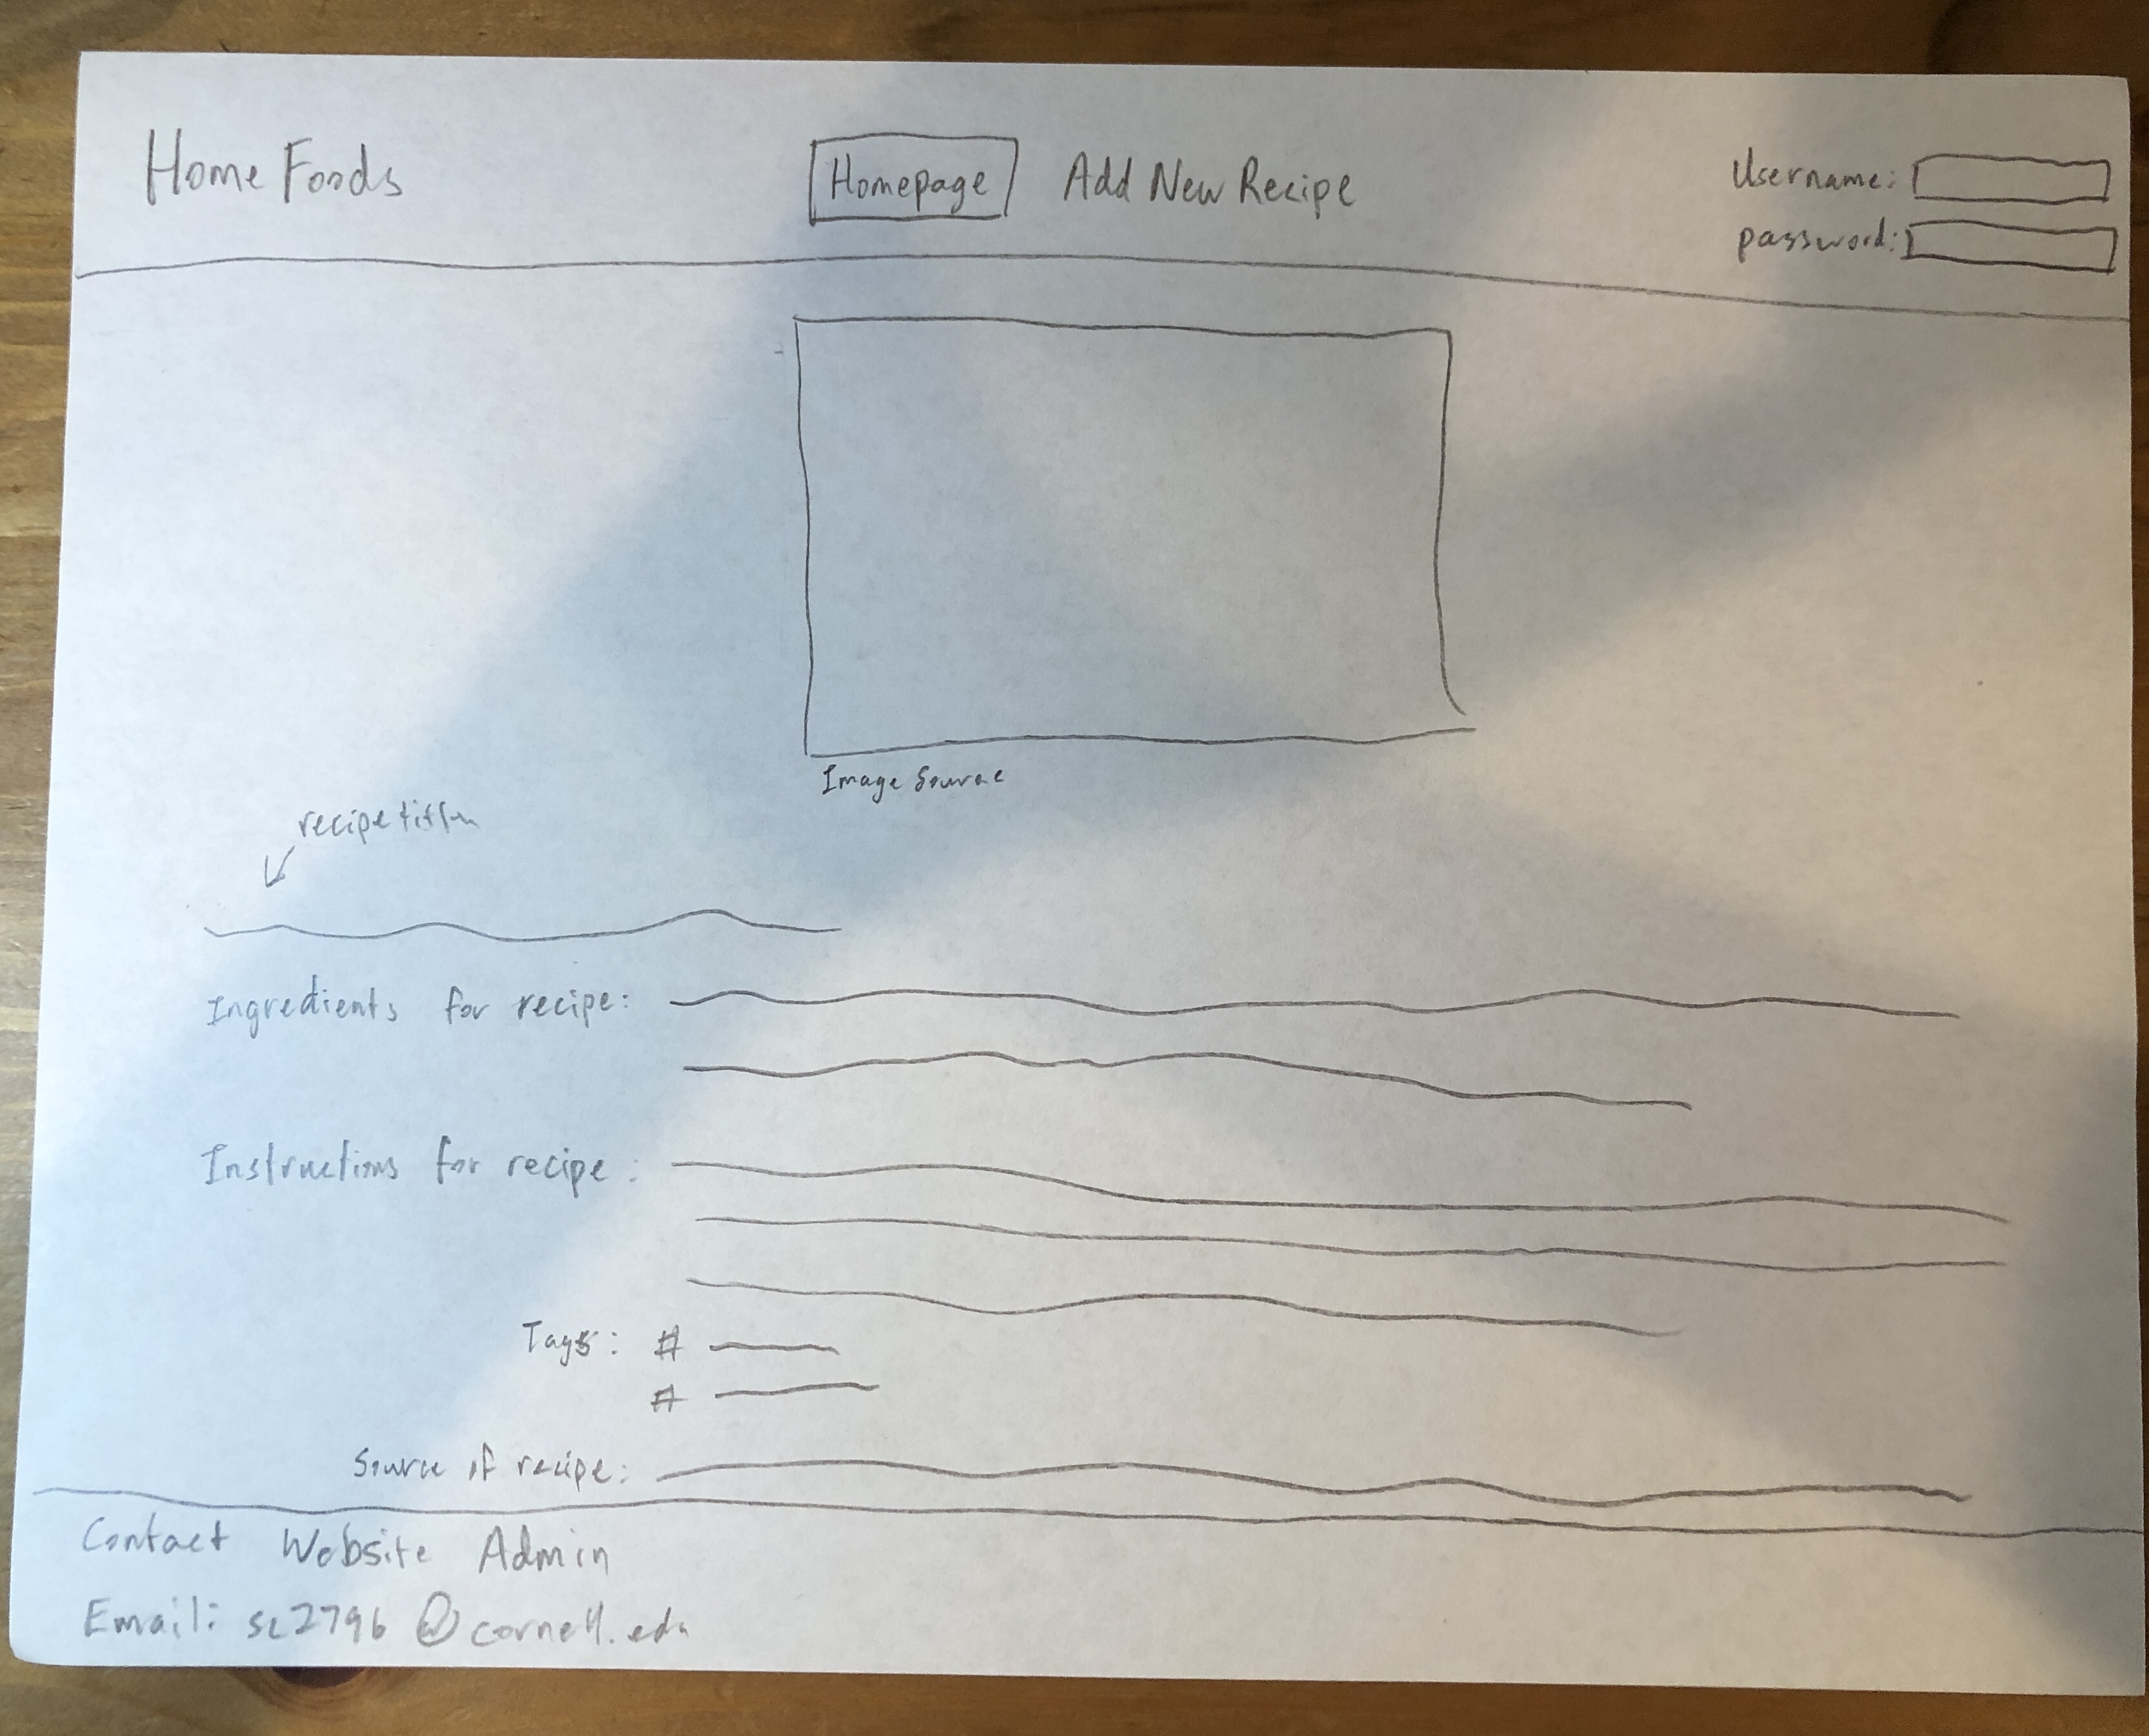 Home Foods
Homepage Add New Recipe
Username:
password:
Image Source
recipe
Ingredients for recipe:
Instructions for recipe:
Tags: #
#
Source of recipe:
Contact Website Admin
Email: sc2796@cornell.edu